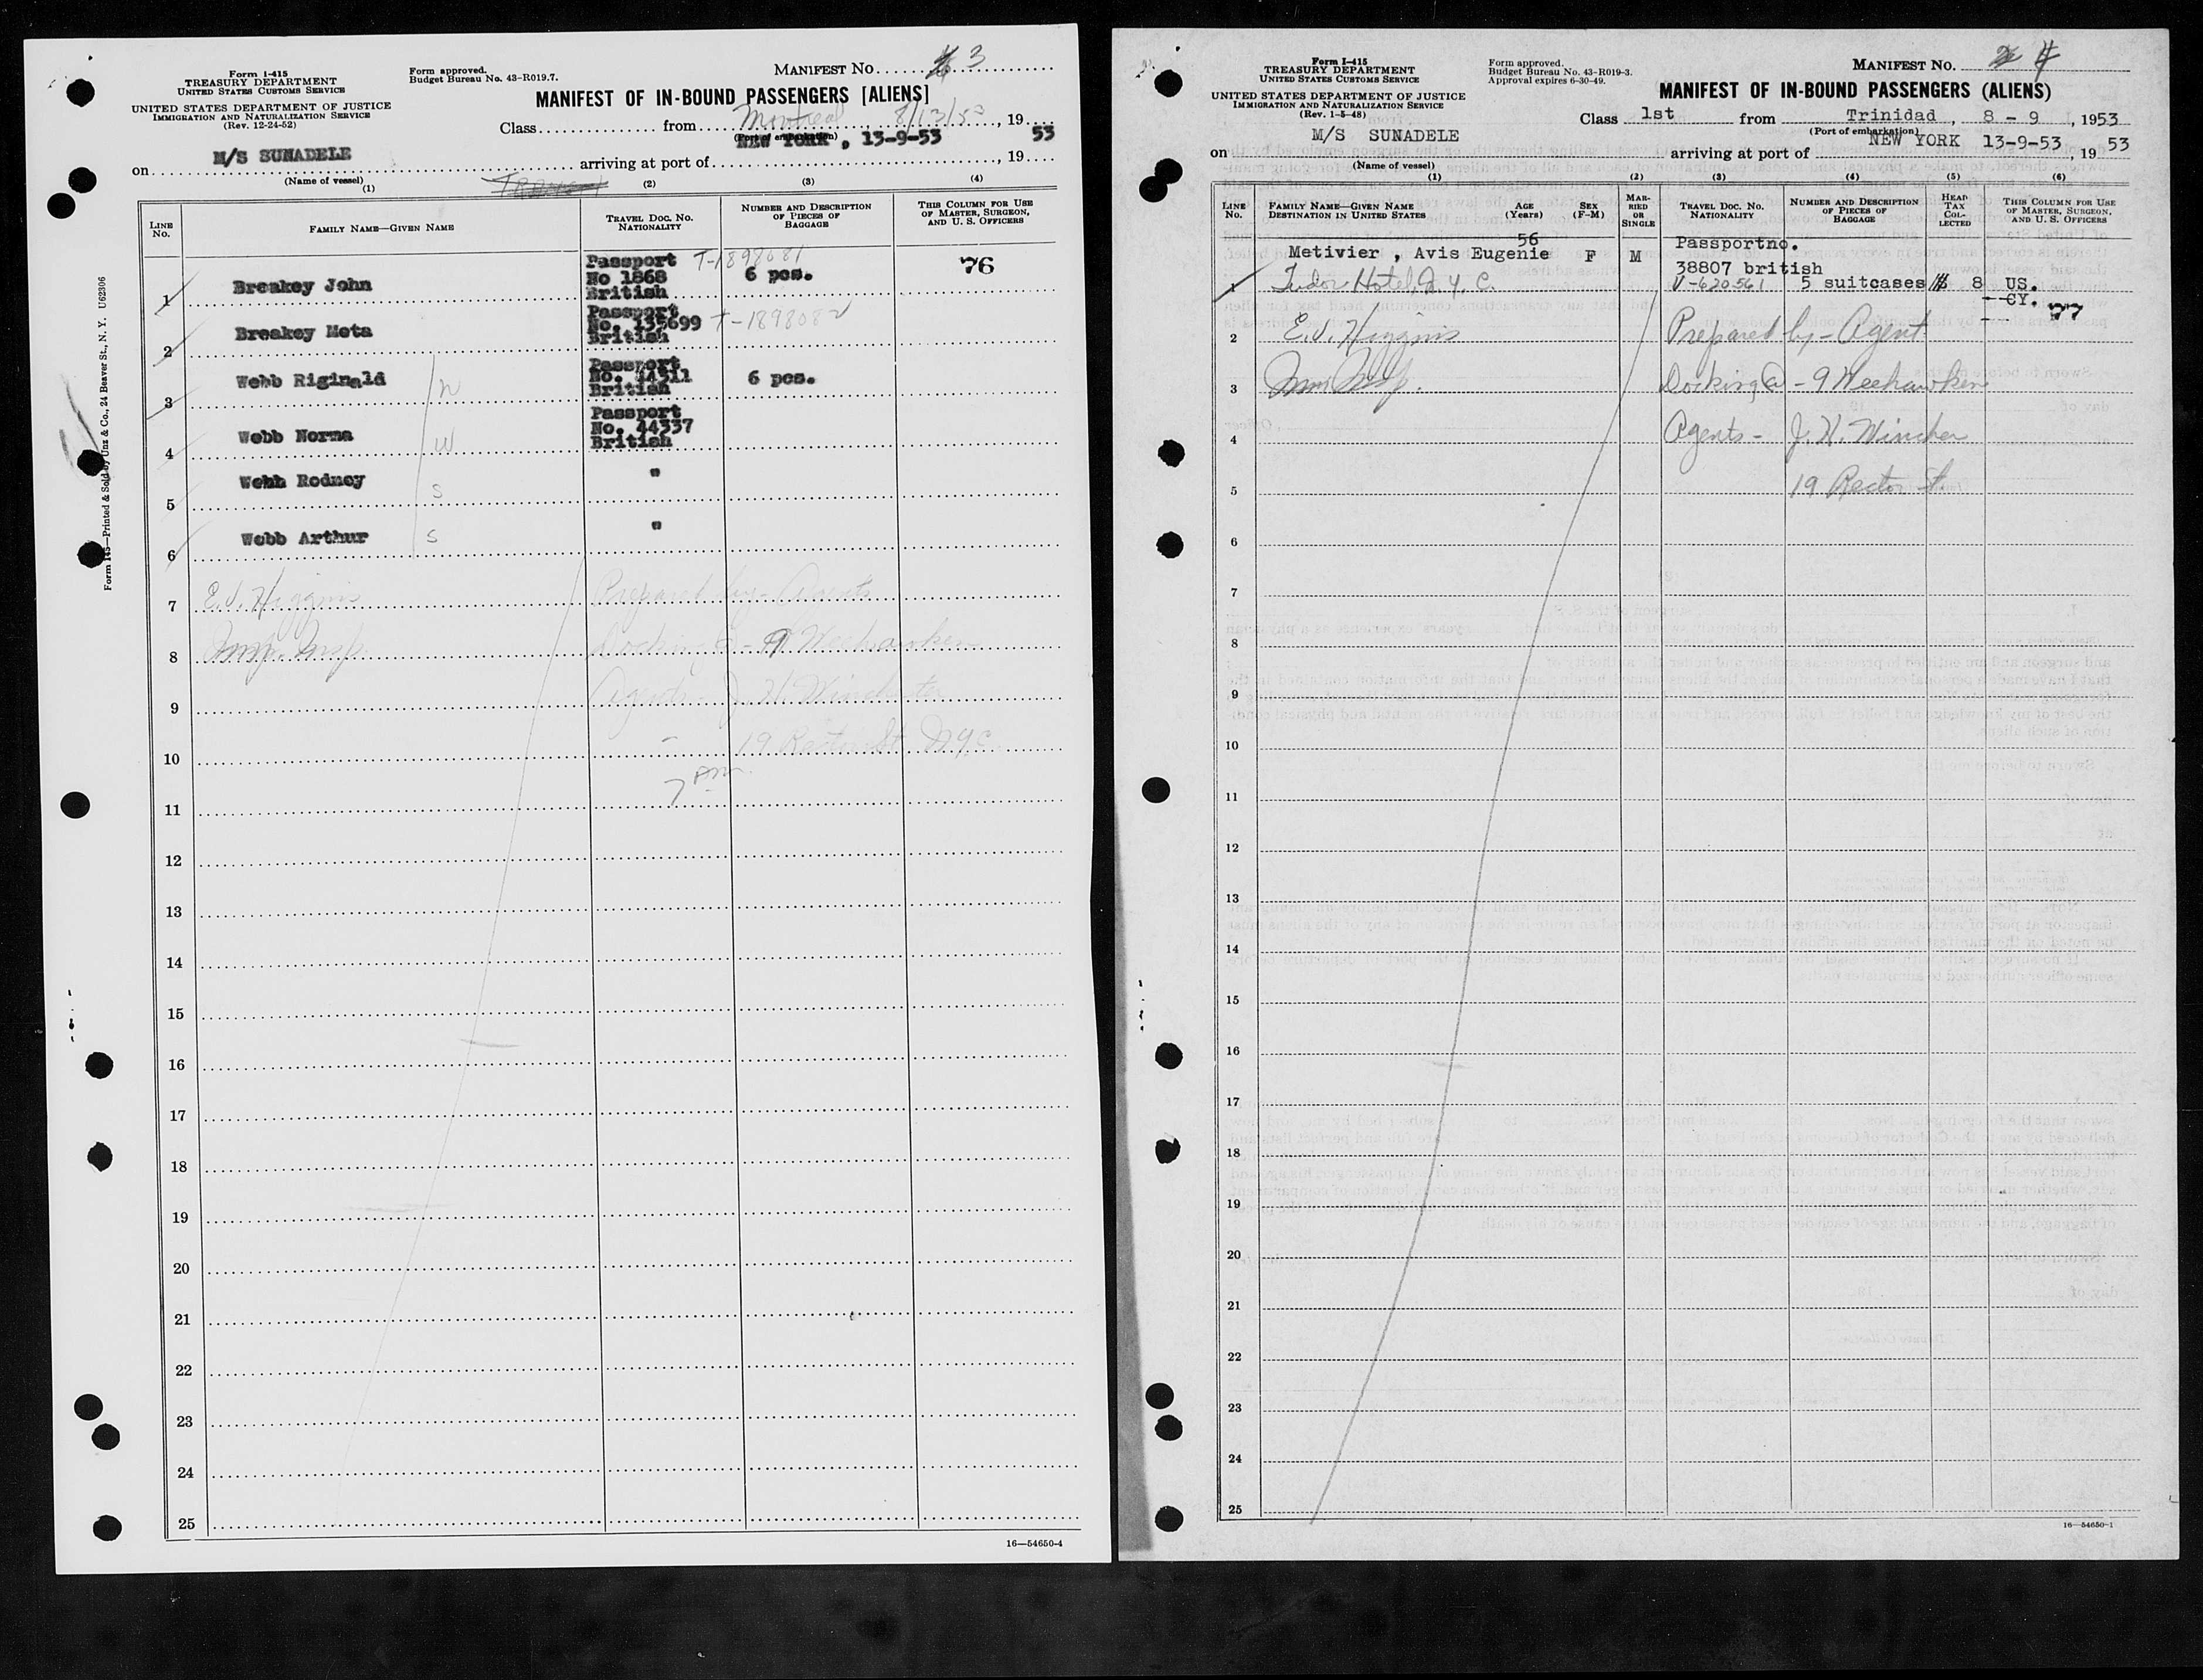 Form I-415
TREASURY DEPARTMENT
UNITED STATES CUSTOMS SERVICE
UNITED STATES DEPARTMENT OF JUSTICE
IMMIGRATION AND NATURALIZATION SERVICE
(Rev. 12-24-52)
Form approved.
Budget Bureau No. 43-R019.7.
MANIFEST No. 3
MANIFEST OF IN-BOUND PASSENGERS [ALIENS]
Class from Montreal 8/13/53, 19
(Port of embarkation)
on M/S SUNADELE arriving at port of NEW YORK, 13-9-53, 19 53
(Name of vessel)
Transit
(1) (2) (3) (4)
LINE No.
FAMILY NAME—GIVEN NAME
TRAVEL DOC. NO. NATIONALITY
NUMBER AND DESCRIPTION OF PIECES OF BAGGAGE
THIS COLUMN FOR USE OF MASTER, SURGEON, AND U. S. OFFICERS
1 Breakey John Passport No 1868 British T-1898081 6 pcs. 76
2 Breakey Meta Passport No. 135699 British T-1898082
3 Webb Riginald Passport No. 44311 British 6 pcs.
4 Webb Norma W Passport No. 44337 British
5 Webb Rodney S "
6 Webb Arthur S "
7 E.J. Higgins Prepared by - Agents
8 Imm. Insp. Docking @ - 9 Weehawken
9 Agents - J. H. Winchester
10 19 Rector St. N.Y.C.
7 PM
11
12
13
14
15
16
17
18
19
20
21
22
23
24
25
16—54650-4
Form 145—Printed & Sold by Unz & Co., 24 Beaver St., N. Y. U62306
Form I-415
TREASURY DEPARTMENT
UNITED STATES CUSTOMS SERVICE
UNITED STATES DEPARTMENT OF JUSTICE
IMMIGRATION AND NATURALIZATION SERVICE
(Rev. 1-5-48)
Form approved.
Budget Bureau No. 43-R019-3.
Approval expires 6-30-49.
MANIFEST No. 4
MANIFEST OF IN-BOUND PASSENGERS (ALIENS)
Class 1st from Trinidad, 8 - 9, 1953
(Port of embarkation)
on M/S SUNADELE arriving at port of NEW YORK 13-9-53, 19 53
(Name of vessel)
(1) (2) (3) (4) (5) (6)
LINE No.
FAMILY NAME—GIVEN NAME
DESTINATION IN UNITED STATES
AGE (Years)
SEX (F-M)
MARRIED OR SINGLE
TRAVEL DOC. NO. NATIONALITY
NUMBER AND DESCRIPTION OF PIECES OF BAGGAGE
HEAD TAX COLLECTED
THIS COLUMN FOR USE OF MASTER, SURGEON, AND U. S. OFFICERS
Metivier , Avis Eugenie 56 F M Passportno. 38807 british
1 Tudor Hotel, N.Y.C. V-620561 5 suitcases 8 US. CY. 77
2 E.J. Higgins Prepared by - Agent
3 Imm Insp. Docking @ - 9 Weehawken
4 Agents - J. H. Winches
5 19 Rector St.
6
7
8
9
10
11
12
13
14
15
16
17
18
19
20
21
22
23
24
25
16—54650-1